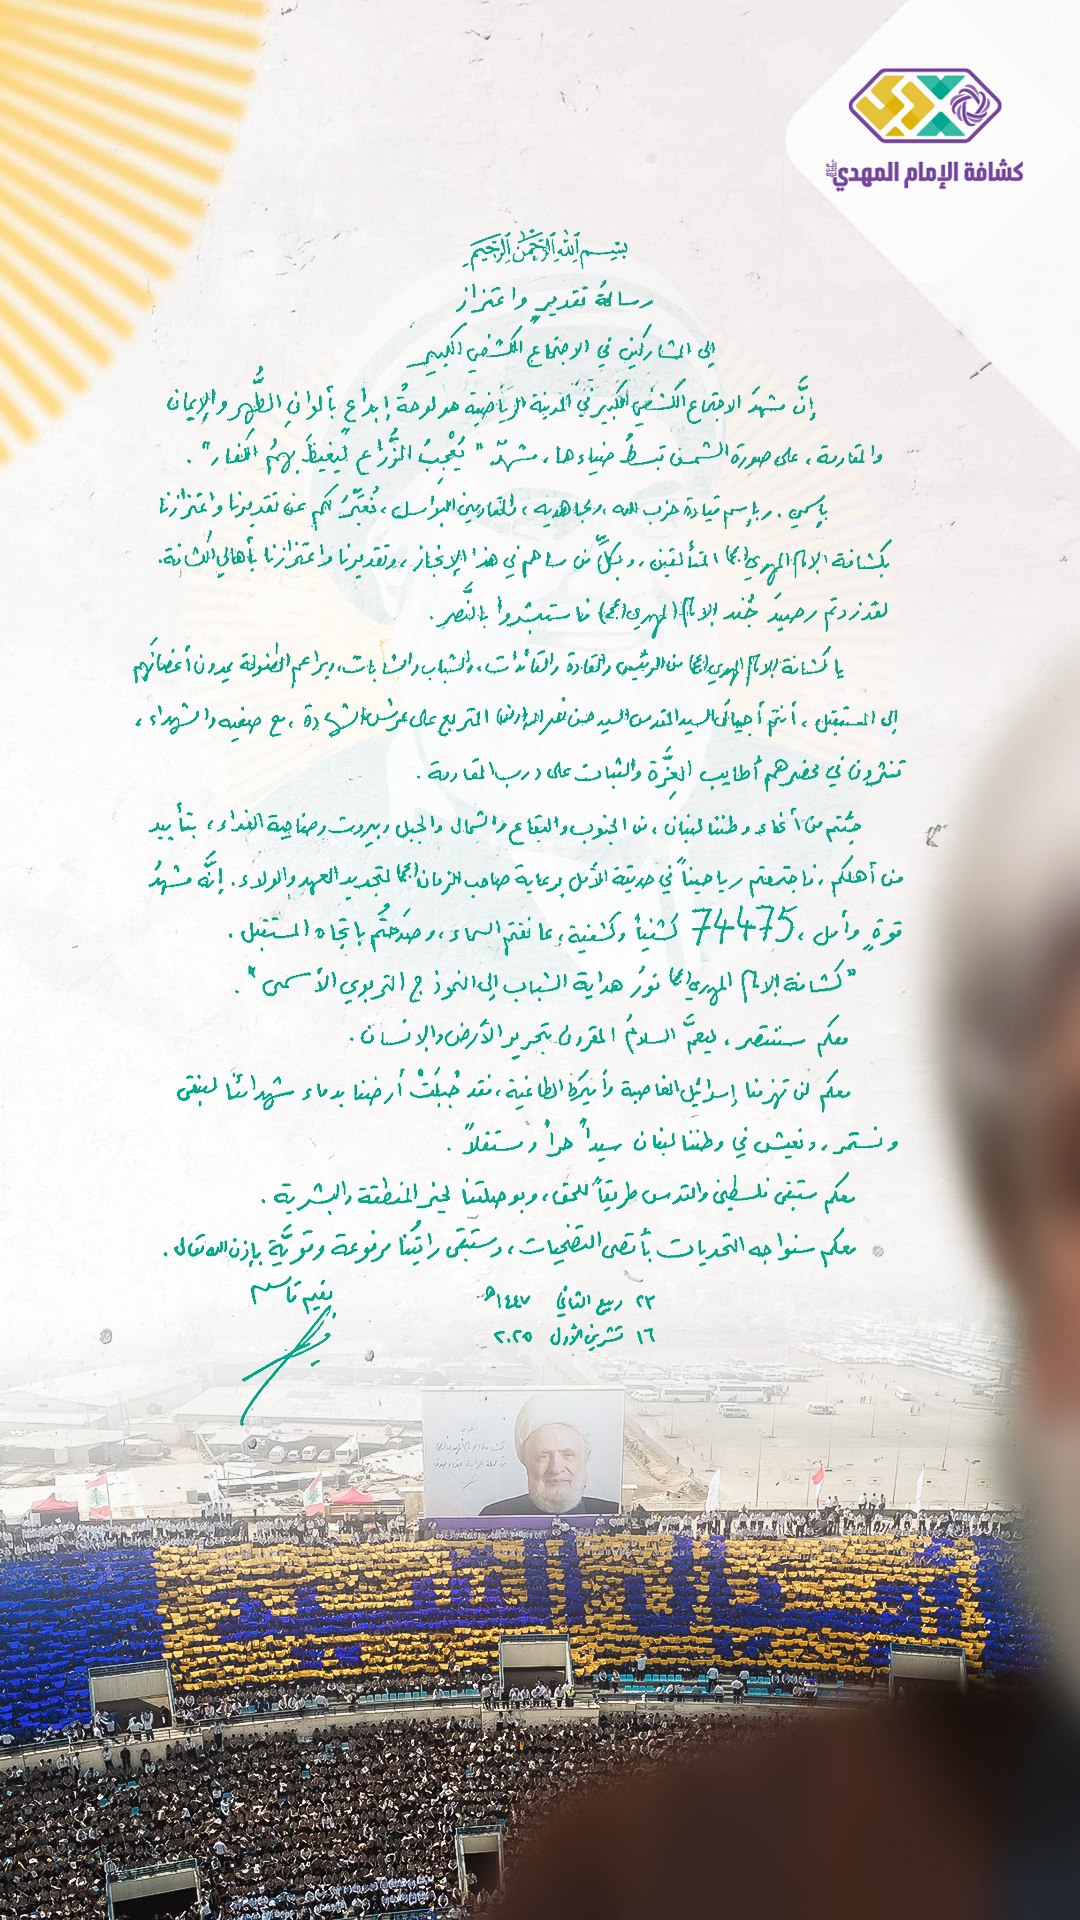 كشافة الإمام المهدي
بسم الله الرحمن الرحيم
رسالةُ تقديرٍ واعتزاز
إلى المشاركين في الاجتماع الكشفي الكبير
إنَّ مشهدَ الاجتماع الكشفي الكبير في المدينة الرياضية هو لوحةُ إبداعٍ بألوانِ الطُّهر والإيمان
والمقاومة، على صورة الشمس تبسطُ ضياءها، مشهدٌ "يُعْجِبُ الزُّرَّاع لِيَغيظَ بِهِمُ الكفار".
بإسمي، وبإسم قيادة حزب الله، ومجاهديه، والمقاومين البواسل، نُعَبِّرُ لكم عن تقديرنا واعتزازنا
بكشافة الإمام المهدي(عج) المتألقين، وبكلِّ من ساهم في هذا الإنجاز، وتقديرنا واعتزازنا بأهالي الكشافة.
لقد زدتم رصيدَ جُند الإمام المهدي(عج) فاستبشروا بالنَّصر.
يا كشافة الإمام المهدي(عج) من الرئيس والقادة والقائدات، والشباب والشابات، وبراعم الطفولة يمدون أغصانهم
إلى المستقبل، أنتم أجيالُ السيد المقدس السيد حسن نصر الله(رض) المتربع على عرش الشهادة، مع صفيه والشهداء،
تنثرون في محضرهم أطايب العِزَّة والثبات على درب المقاومة.
جئتم من أنحاء وطننا لبنان، من الجنوب والبقاع والشمال والجبل وبيروت وضاحية الفداء، بتأييد
من أهلكم، فاجتمعتم رياحيناً في حديقة الأمل برعاية صاحب الزمان(عج) لتجديد العهد والولاء. إنَّه مشهدُ
قوةٍ وأمل، 74475 كشفياً وكشفية، عانقتم السماء، وصدحتُم باتجاه المستقبل.
"كشافة الإمام المهدي(عج) نورُ هداية الشباب إلى النموذج التربوي الأسمى".
معكم سننتصر، ليعمَّ السلامُ المقرون بتحرير الأرض والإنسان.
معكم لن تهزمنا إسرائيل الغاصبة وأميركا الطاغية، فقد جُبِلَتْ أرضنا بدماء شهدائنا لنبقى
ونستمر، ونعيش في وطننا لبنان سيداً حراً ومستقلاً.
معكم ستبقى فلسطين والقدس طريقاً للحق، وبوصلتنا لخير المنطقة والبشرية.
معكم سنواجه التحديات بأقصى التضحيات، وستبقى رايتُنا مرفوعة وقويَّة بإذن الله تعالى.
٢٣ ربيع الثاني ١٤٤٧هـ
نعيم قاسم
١٦ تشرين الأول ٢٠٢٥